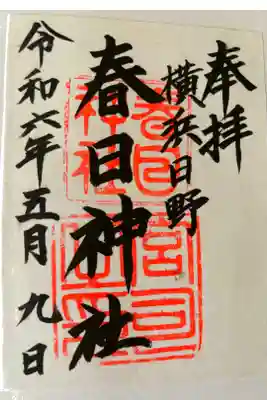 奉拝
横浜日野
春日神社
令和六年五月九日